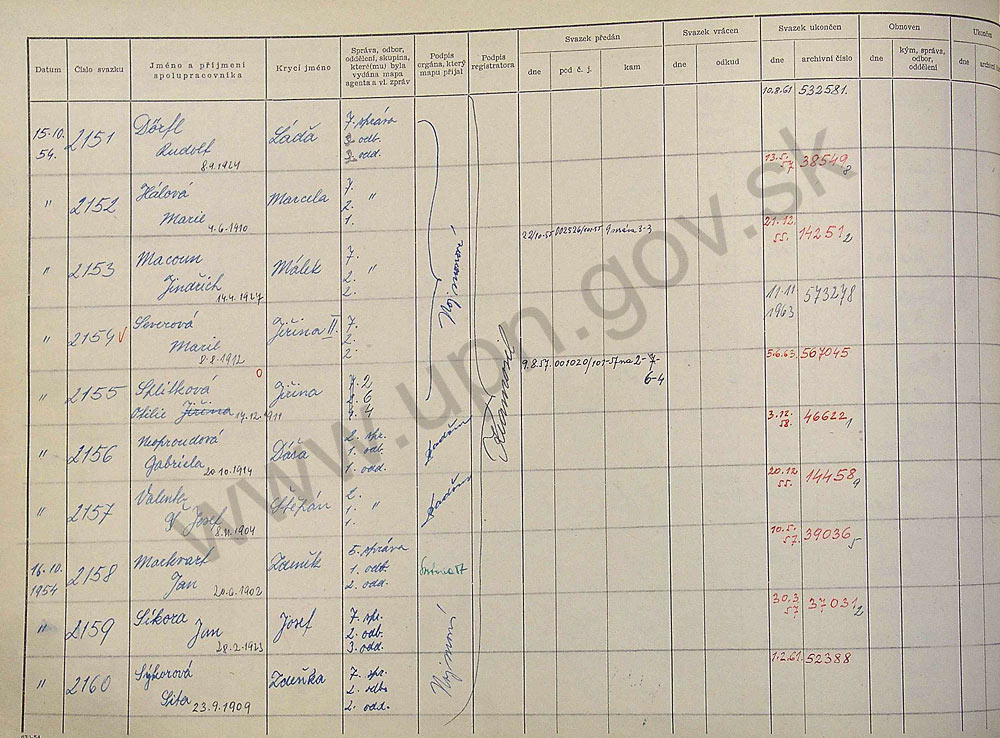 Datum
Číslo svazku
Jméno a příjmení spolupracovníka
Krycí jméno
Správa, odbor, oddělení, skupina, které(mu) byla vydána mapa agenta a vl. zpráv
Podpis orgána, který mapu přijal
Podpis registratora
Svazek předán
dne
pod č. j.
kam
Svazek vrácen
dne
odkud
Svazek ukončen
dne
archivní číslo
Obnoven
dne
kým, správa, odbor, oddělení
Ukončen
dne
15.10. 2151 Dörfl Láďa 7. správa 10.8.61 532581.
54. Rudolf 3. odb.
8.9.1924 3. odd.
" 2152 Hálová Marcela 7. " 13.5. 57. 38549 8
Marie 2.
4.6.1910 1.
" 2153 Macoun Málek 7. " 22/10-55 21.12. 55. 14251 2
Jindřich 2.
14.4.1927 2.
" 2154 V Severová Jiřina II. 7. 11.11 1963 573278
Marie 2.
8.8.1912 2.
" 2155 Šplítková Jiřina 7. 2 9.8.57. 001020/101-57 na 2-7 6-4 5.6.63. 567045
Otilie Jiřina 17.12.1911 2. 6
" 2156 Neoproudová Dáša 2. spr. 3.12. 58. 46622 1
Gabriela 20.10.1914 1. odb.
1. odd.
" 2157 Valenta Štěpán 2. " 20.12 55. 14458 9
Josef 1.
8.11.1904 1.
16.10. 2158 Markvart Zdeněk 5. správa 10.5. 57. 39036 5
1954 Jan 1. odb.
20.6.1902 2. odd.
" 2159 Sikora Josef 7. spr. 30.3. 57 37031 2
Jan 2. odb.
28.2.1923 3. odd.
" 2160 Sýkorová Zdeňka 7. spr. 1.2.61. 52388
Sita 2. odb.
23.9.1909 2. odd.
www.upn.gov.sk